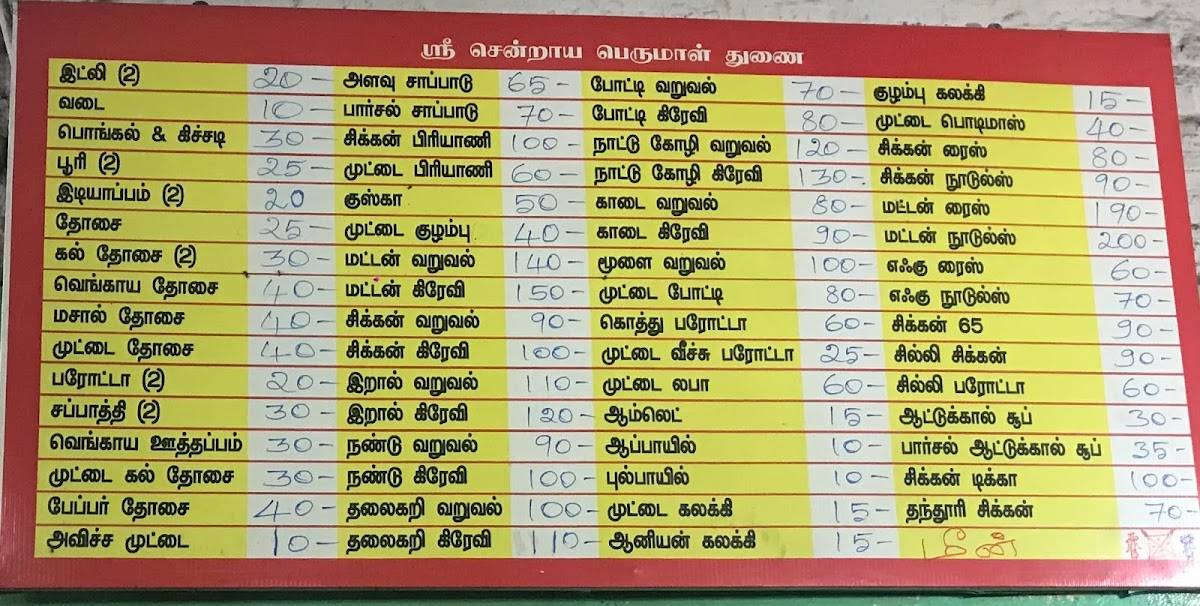 ஸ்ரீ சென்றாய பெருமாள் துணை
இட்லி (2) 20- அளவு சாப்பாடு 65- போட்டி வறுவல் 70- குழம்பு கலக்கி 15-
வடை 10- பார்சல் சாப்பாடு 70- போட்டி கிரேவி 80- முட்டை பொடிமாஸ் 40-
பொங்கல் & கிச்சடி 30- சிக்கன் பிரியாணி 100- நாட்டு கோழி வறுவல் 120- சிக்கன் ரைஸ் 80-
பூரி (2) 25- முட்டை பிரியாணி 60- நாட்டு கோழி கிரேவி 130- சிக்கன் நூடுல்ஸ் 90-
இடியாப்பம் (2) 20 குஸ்கா 50- காடை வறுவல் 80- மட்டன் ரைஸ் 190-
தோசை 25- முட்டை குழம்பு 40- காடை கிரேவி 90- மட்டன் நூடுல்ஸ் 200-
கல் தோசை (2) 30- மட்டன் வறுவல் 140- மூளை வறுவல் 100- எஃகு ரைஸ் 60-
வெங்காய தோசை 40- மட்டன் கிரேவி 150- முட்டை போட்டி 80- எஃகு நூடுல்ஸ் 70-
மசால் தோசை 40- சிக்கன் வறுவல் 90- கொத்து பரோட்டா 60- சிக்கன் 65 90-
முட்டை தோசை 40- சிக்கன் கிரேவி 100- முட்டை வீச்சு பரோட்டா 25- சில்லி சிக்கன் 90-
பரோட்டா (2) 20- இறால் வறுவல் 110- முட்டை லபா 60- சில்லி பரோட்டா 60-
சப்பாத்தி (2) 30- இறால் கிரேவி 120- ஆம்லெட் 15- ஆட்டுக்கால் சூப் 30-
வெங்காய ஊத்தப்பம் 30- நண்டு வறுவல் 90- ஆப்பாயில் 10- பார்சல் ஆட்டுக்கால் சூப் 35-
முட்டை கல் தோசை 30- நண்டு கிரேவி 100- புல்பாயில் 10- சிக்கன் டிக்கா 100-
பேப்பர் தோசை 40- தலைகறி வறுவல் 100- முட்டை கலக்கி 15- தந்தூரி சிக்கன் 70-
அவிச்ச முட்டை 10- தலைகறி கிரேவி 110- ஆனியன் கலக்கி 15- மீன்